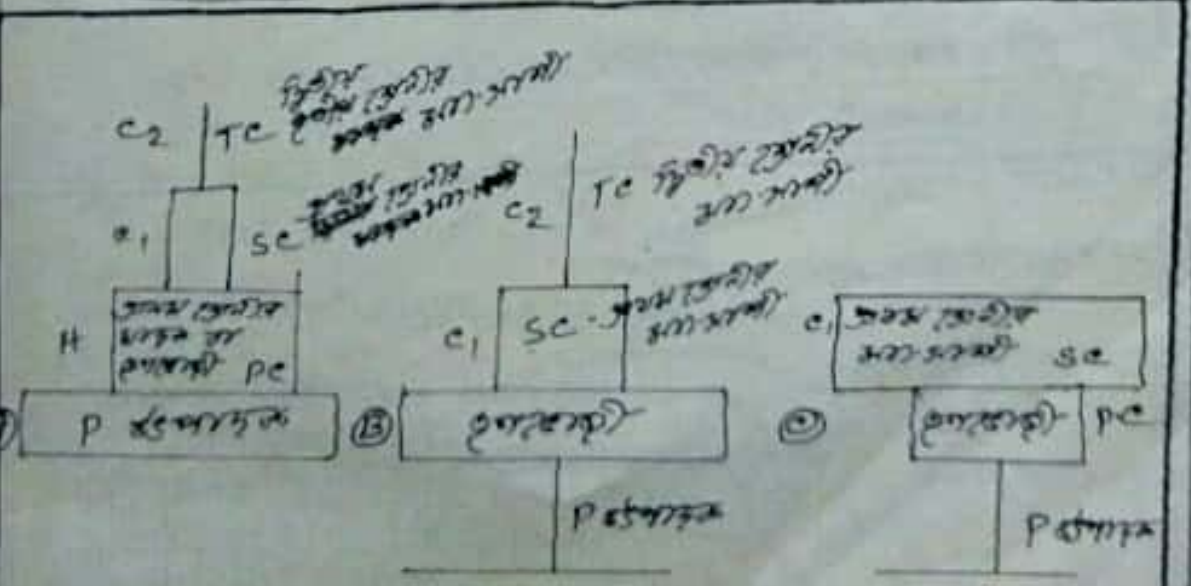 C2 TC দ্বিতীয়
শ্রেনীর
মাংসাশী
C1 SC
শ্রেনীর
H প্রথম শ্রেনীর
খাদক বা
তৃণভোজী PC
P উৎপাদক
C2 TC দ্বিতীয় শ্রেনীর
মাংসাশী
C1 SC প্রথম শ্রেনীর
মাংসাশী
B তৃণভোজী
P উৎপাদক
C1 প্রথম শ্রেনীর
মাংসাশী SC
C তৃণভোজী PC
P উৎপাদক